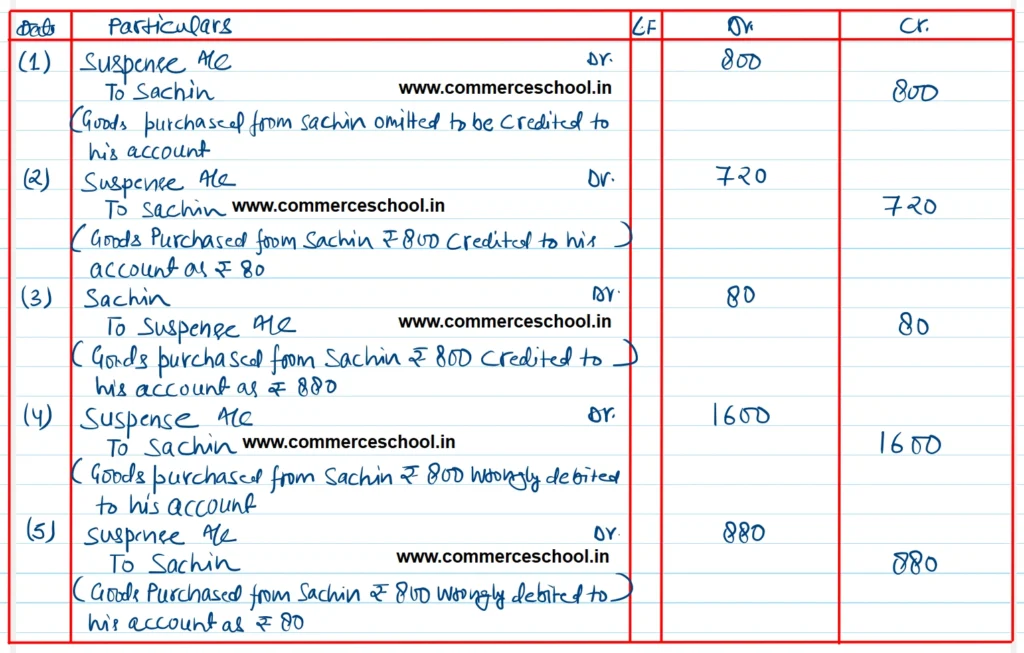 Date Particulars L.F Dr. Cr.
(1) Suspense A/c Dr. 800
To Sachin www.commerceschool.in 800
(Goods purchased from Sachin omitted to be credited to
his account
(2) Suspense A/c Dr. 720
To Sachin www.commerceschool.in 720
(Goods Purchased from Sachin ₹ 800 Credited to his)
account as ₹ 80
(3) Sachin Dr. 80
To Suspense A/c www.commerceschool.in 80
(Goods purchased from Sachin ₹ 800 Credited to)
his account as ₹ 880
(4) Suspense A/c Dr. 1600
To Sachin www.commerceschool.in 1600
(Goods purchased from Sachin ₹ 800 wrongly debited
to his account
(5) Suspense A/c Dr. 880
To Sachin www.commerceschool.in 880
(Goods Purchased from Sachin ₹ 800 wrongly debited to)
his account as ₹ 80